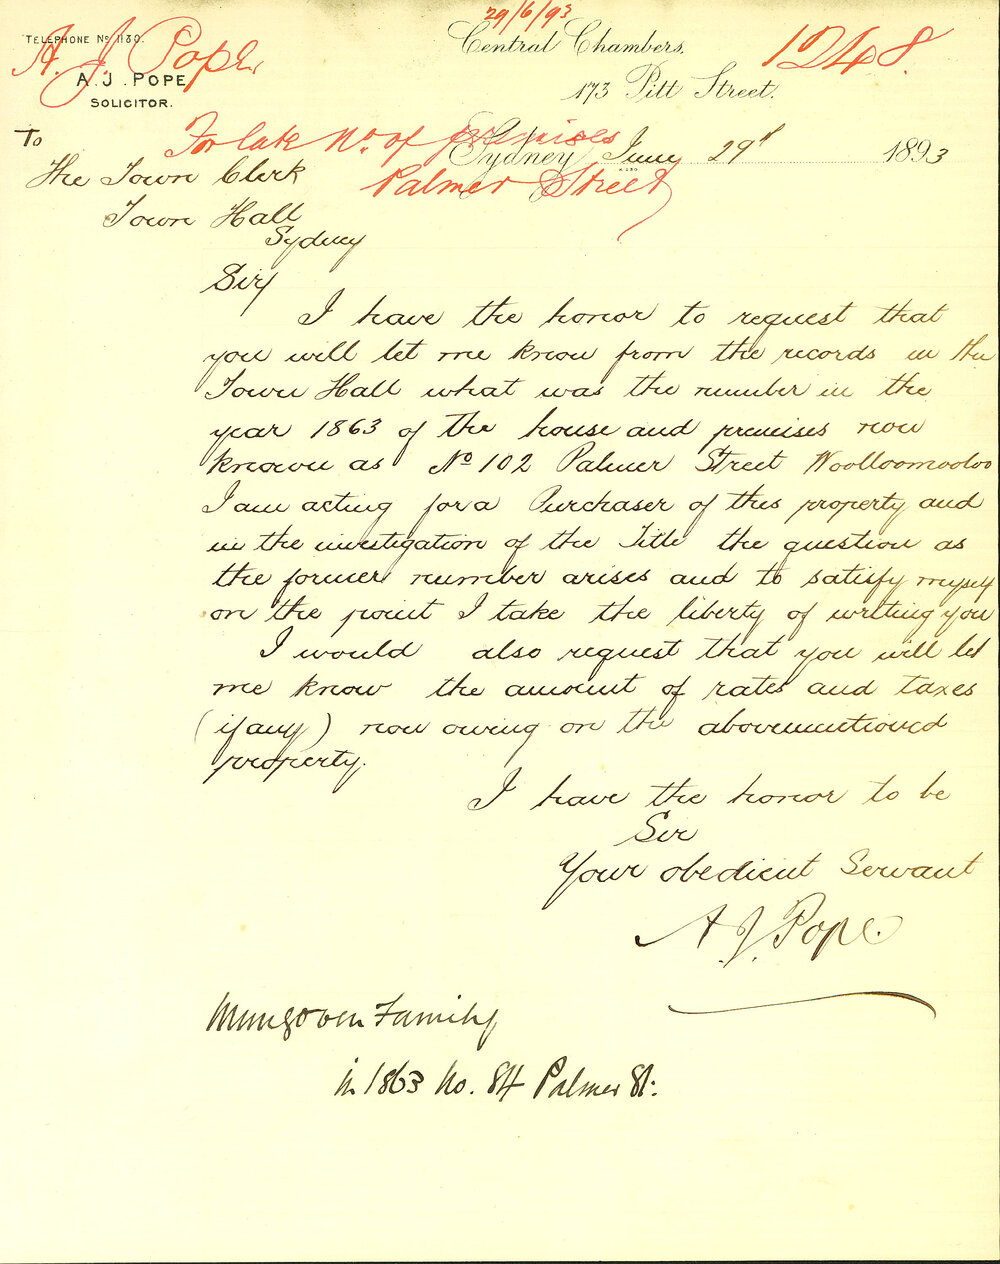 29/6/93
TELEPHONE No 1130.
A. J. Pope
Central Chambers,
1248.
A. J. POPE
SOLICITOR.
173 Pitt Street.
To
For late No. of premises
Sydney June 29th 1893
The Town Clerk
Palmer Street
Town Hall
Sydney
Sir
I have the honor to request that
you will let me know from the records in the
Town Hall what was the number in the
year 1863 of the house and premises now
known as No 102 Palmer Street Woolloomooloo
I am acting for a Purchaser of this property and
in the investigation of the Title the question as
the former number arises and to satisfy myself
on the point I take the liberty of writing you
I would also request that you will let
me know the amount of rates and taxes
(if any) now owing on the abovementioned
property.
I have the honor to be
Sir
Your obedient Servant
A. J. Pope.
Mungoven Family
in 1863 No. 84 Palmer St: